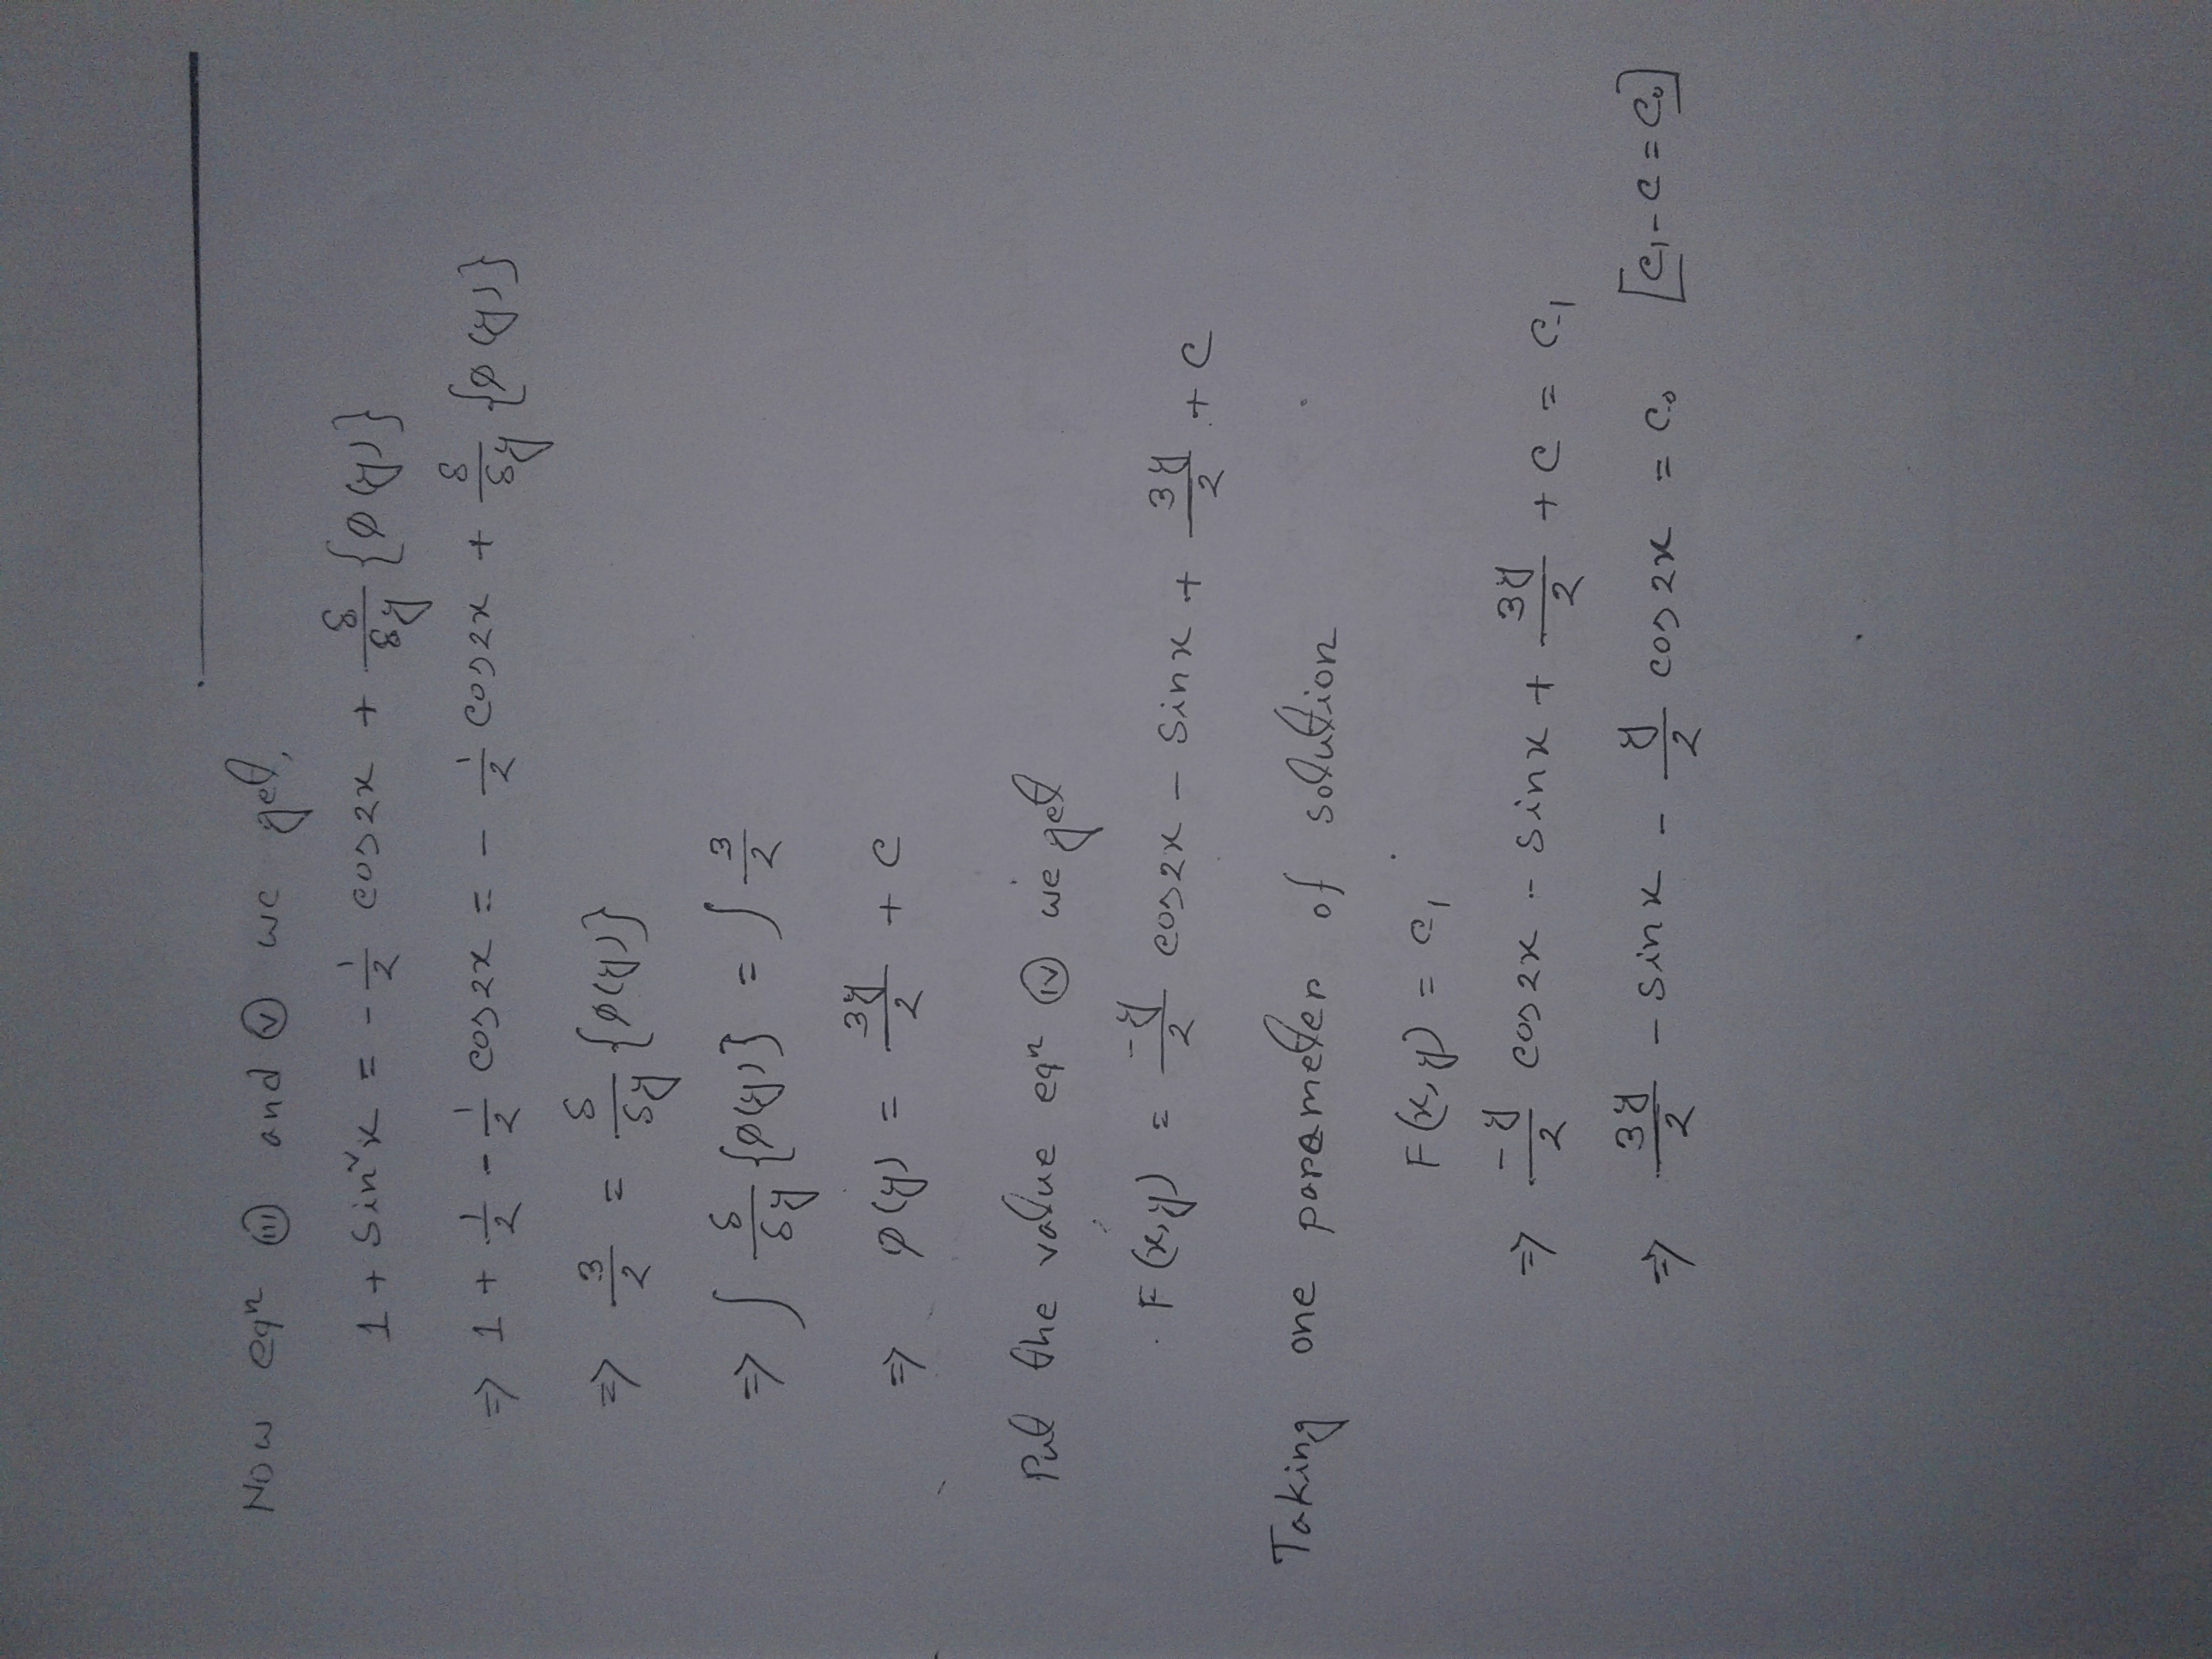 Now eqⁿ (iii) and (v) we get,
1 + Sin²x = - 1/2 cos2x + δ/δy {φ(y)}
⇒ 1 + 1/2 - 1/2 cos2x = - 1/2 cos2x + δ/δy {φ(y)}
⇒ 3/2 = δ/δy {φ(y)}
⇒ ∫ δ/δy {φ(y)} = ∫ 3/2
⇒ φ(y) = 3y/2 + c
Put the value eqⁿ (iv) we get
F(x,y) = -y/2 cos2x - Sinx + 3y/2 + c
Taking one parameter of solution
F(x,y) = c₁
⇒ -y/2 cos2x - Sinx + 3y/2 + c = c₁
⇒ 3y/2 - Sinx - y/2 cos2x = c₀ [c₁ - c = c₀]